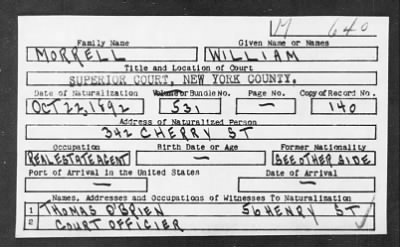 M 640
Family Name Given Name or Names
MORRELL WILLIAM
Title and Location of Court
SUPERIOR COURT, NEW YORK COUNTY.
Date of Naturalization Volume or Bundle No. Page No. Copy of Record No.
OCT 22, 1892 531 — 140
Address of Naturalized Person
342 CHERRY ST
Occupation Birth Date or Age Former Nationality
REAL ESTATE AGENT — SEE OTHER SIDE
Port of Arrival in the United States Date of Arrival
— —
Names, Addresses and Occupations of Witnesses To Naturalization
1 THOMAS O'BRIEN 56 HENRY ST
2 COURT OFFICIER